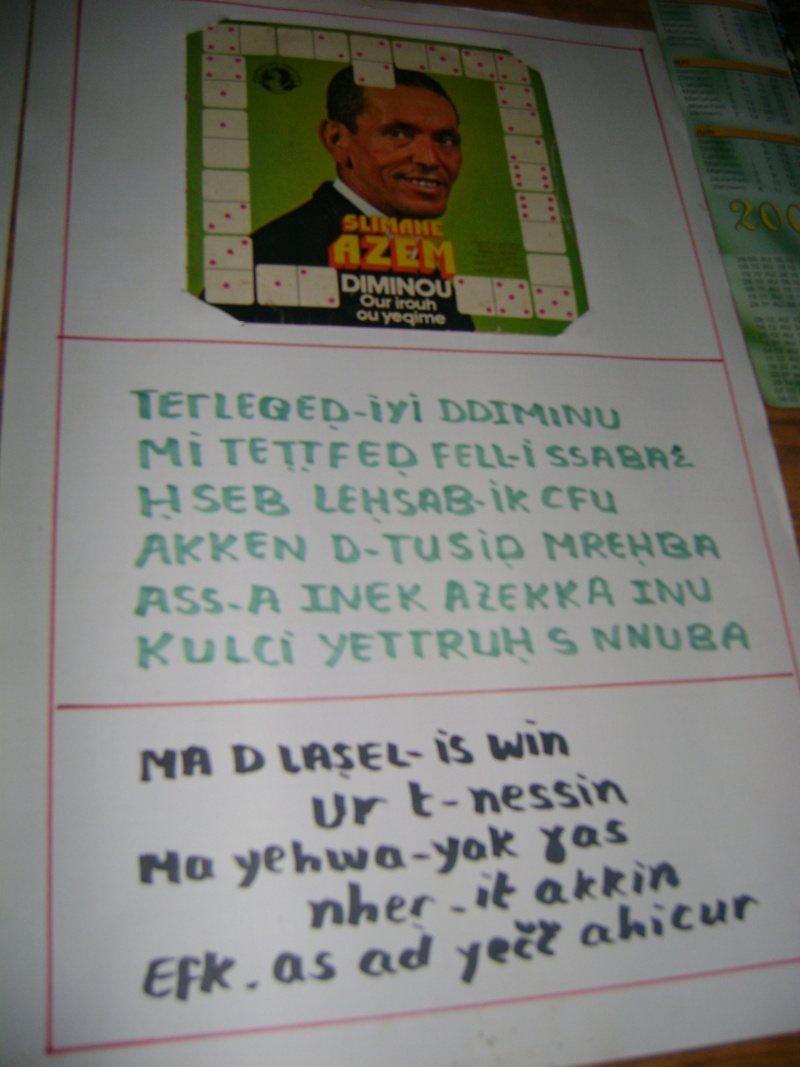 SLIMANE
AZEM
DIMINOU
Our irouh
ou yeqime
TERLEQEḌ-iyi DDIMINU
Mi TEṬṬFEḌ FELL-i SSABAƐ
ḤSEB LEḤSAB-iK CFU
AKKEN D-TUSiḌ MREḤBA
ASS-A INEK AZEKKA INU
KULCi YETTRUḤ S NNUBA
MA D LAṢEL-iS Win
Ur t-nessin
Ma yehwa-yak ɣas
nheṛ-it akkin
Efk-as ad yečč ahicur
200